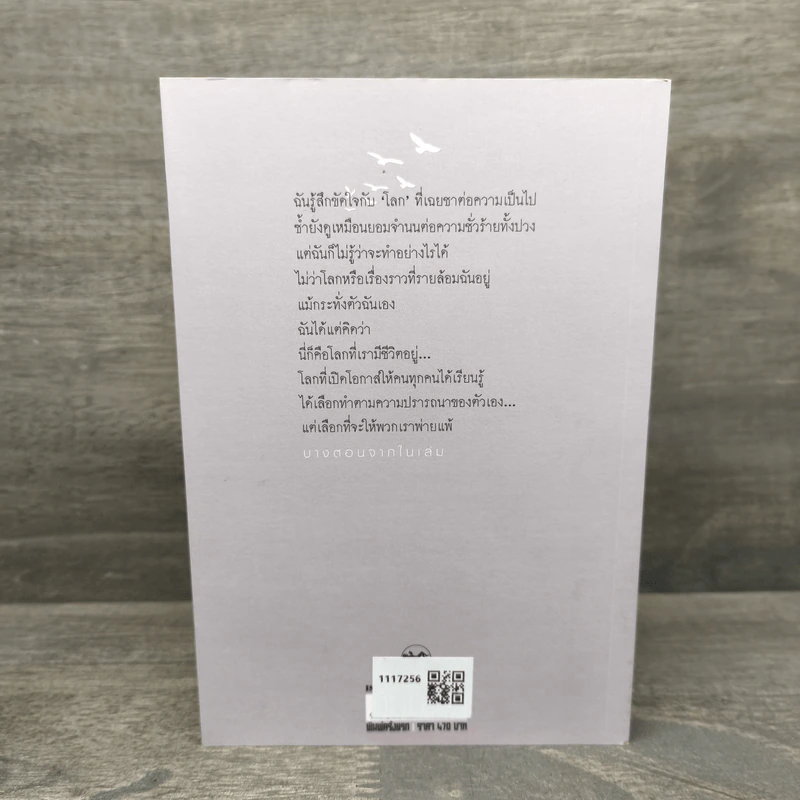 ฉันรู้สึกขัดใจกับ ‘โลก’ ที่เฉยชาต่อความเป็นไป
ซ้ำยังดูเหมือนยอมจำนนต่อความชั่วร้ายทั้งปวง
แต่ฉันก็ไม่รู้ว่าจะทำอย่างไรได้
ไม่ว่าโลกหรือเรื่องราวที่รายล้อมฉันอยู่
แม้กระทั่งตัวฉันเอง
ฉันได้แต่คิดว่า
นี่ก็คือโลกที่เรามีชีวิตอยู่...
โลกที่เปิดโอกาสให้คนทุกคนได้เรียนรู้
ได้เลือกทำตามความปรารถนาของตัวเอง...
แต่เลือกที่จะให้พวกเราพ่ายแพ้
บางตอนจากในเล่ม
1117256
ราคา 470 บาท